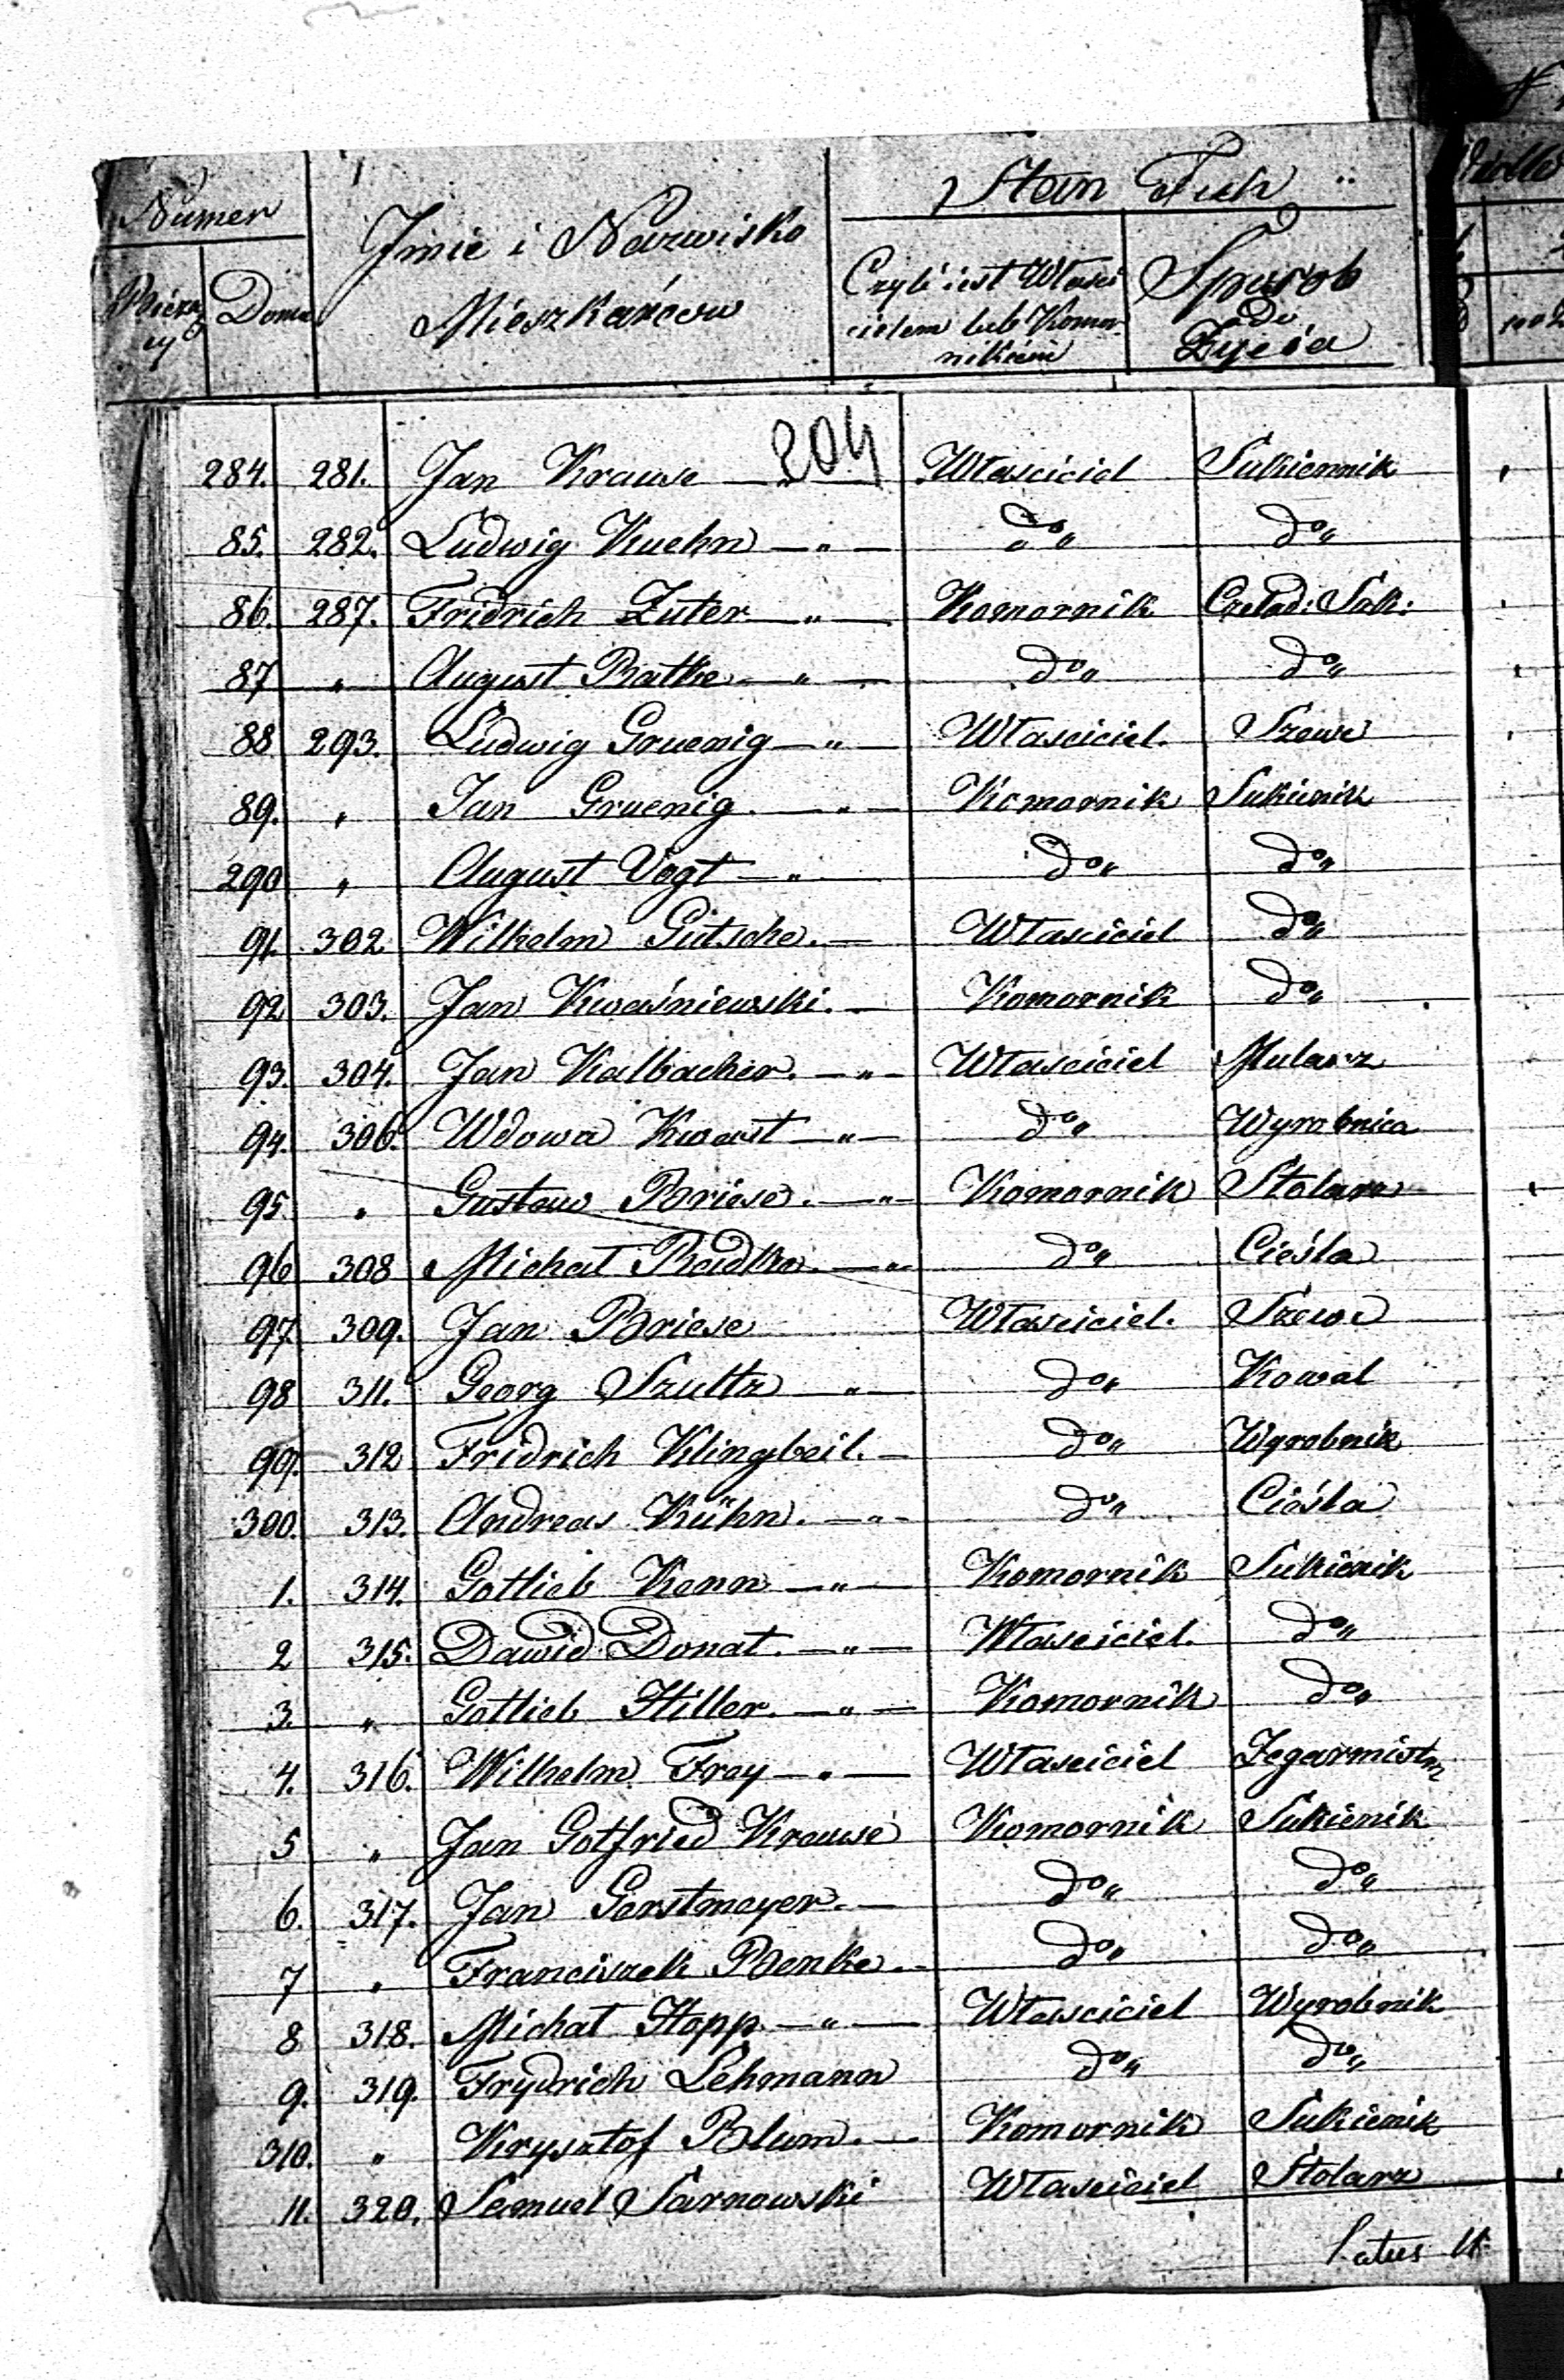 Numer
Jmie i Nazwisko Mieszkańców
Stan Ich
Bieżący
Domu
Czyli iest Właścicielem lub Komornikiem
Sposob do Życia
204
284. 281. Jan Krause — " — Właściciel Sukiennik
85. 282. Ludwig Kuehn — " — do " do "
86. 287. Fridrich Zuter — " — Komornik Czelad: Suk:
87 " August Ratke — " — do " do "
88 293. Ludwig Gruenig — " — Właściciel. Szewc
89. " Jan Gruenig. — " — Komornik Sukienik
290 " August Vogt — " do " do "
91. 302 Wilhelm Gutsche. — Właściciel do "
92 303. Jan Kwaśniewski. — Komornik do "
93. 304. Jan Kalbacher. — " — Właściciel Mularz
94. 306. Wdowa Kwast — " — do " Wyrobnica
95. " Gustaw Briese. — " — Komornik Stolarz
96 308 Michał Radka. — " do " Cieśla
97. 309. Jan Briese Właściciel. Szewc
98 311. Georg Szultz — " — do " Kowal
99. 312 Fridrich Klingbeil. — do " Wyrobnik
300. 313. Andreas Kühn. — " — do " Cieśla
1. 314. Gotlieb Kenn — " — Komornik Sukienik
2 315. Dawid Donat. — " — Właściciel. do "
3. " Gotlieb Hiller. — " — Komornik do "
4. 316. Wilhelm Frey — " — Właściciel Zegarmistrz
5 " Jan Gotfried Krause Komornik Sukienik
6. 317. Jan Gerstmeyer. — do " do "
7 " Franciszek Benke. — do " do "
8 318. Michał Hopp. — " — Właściciel Wyrobnik
9. 319. Frydrich Lehmann do " do "
310. " Krysztof Blum. — Komornik Sukienik
11. 320. Samuel Sarnowski Właściciel Stolarz
Latus